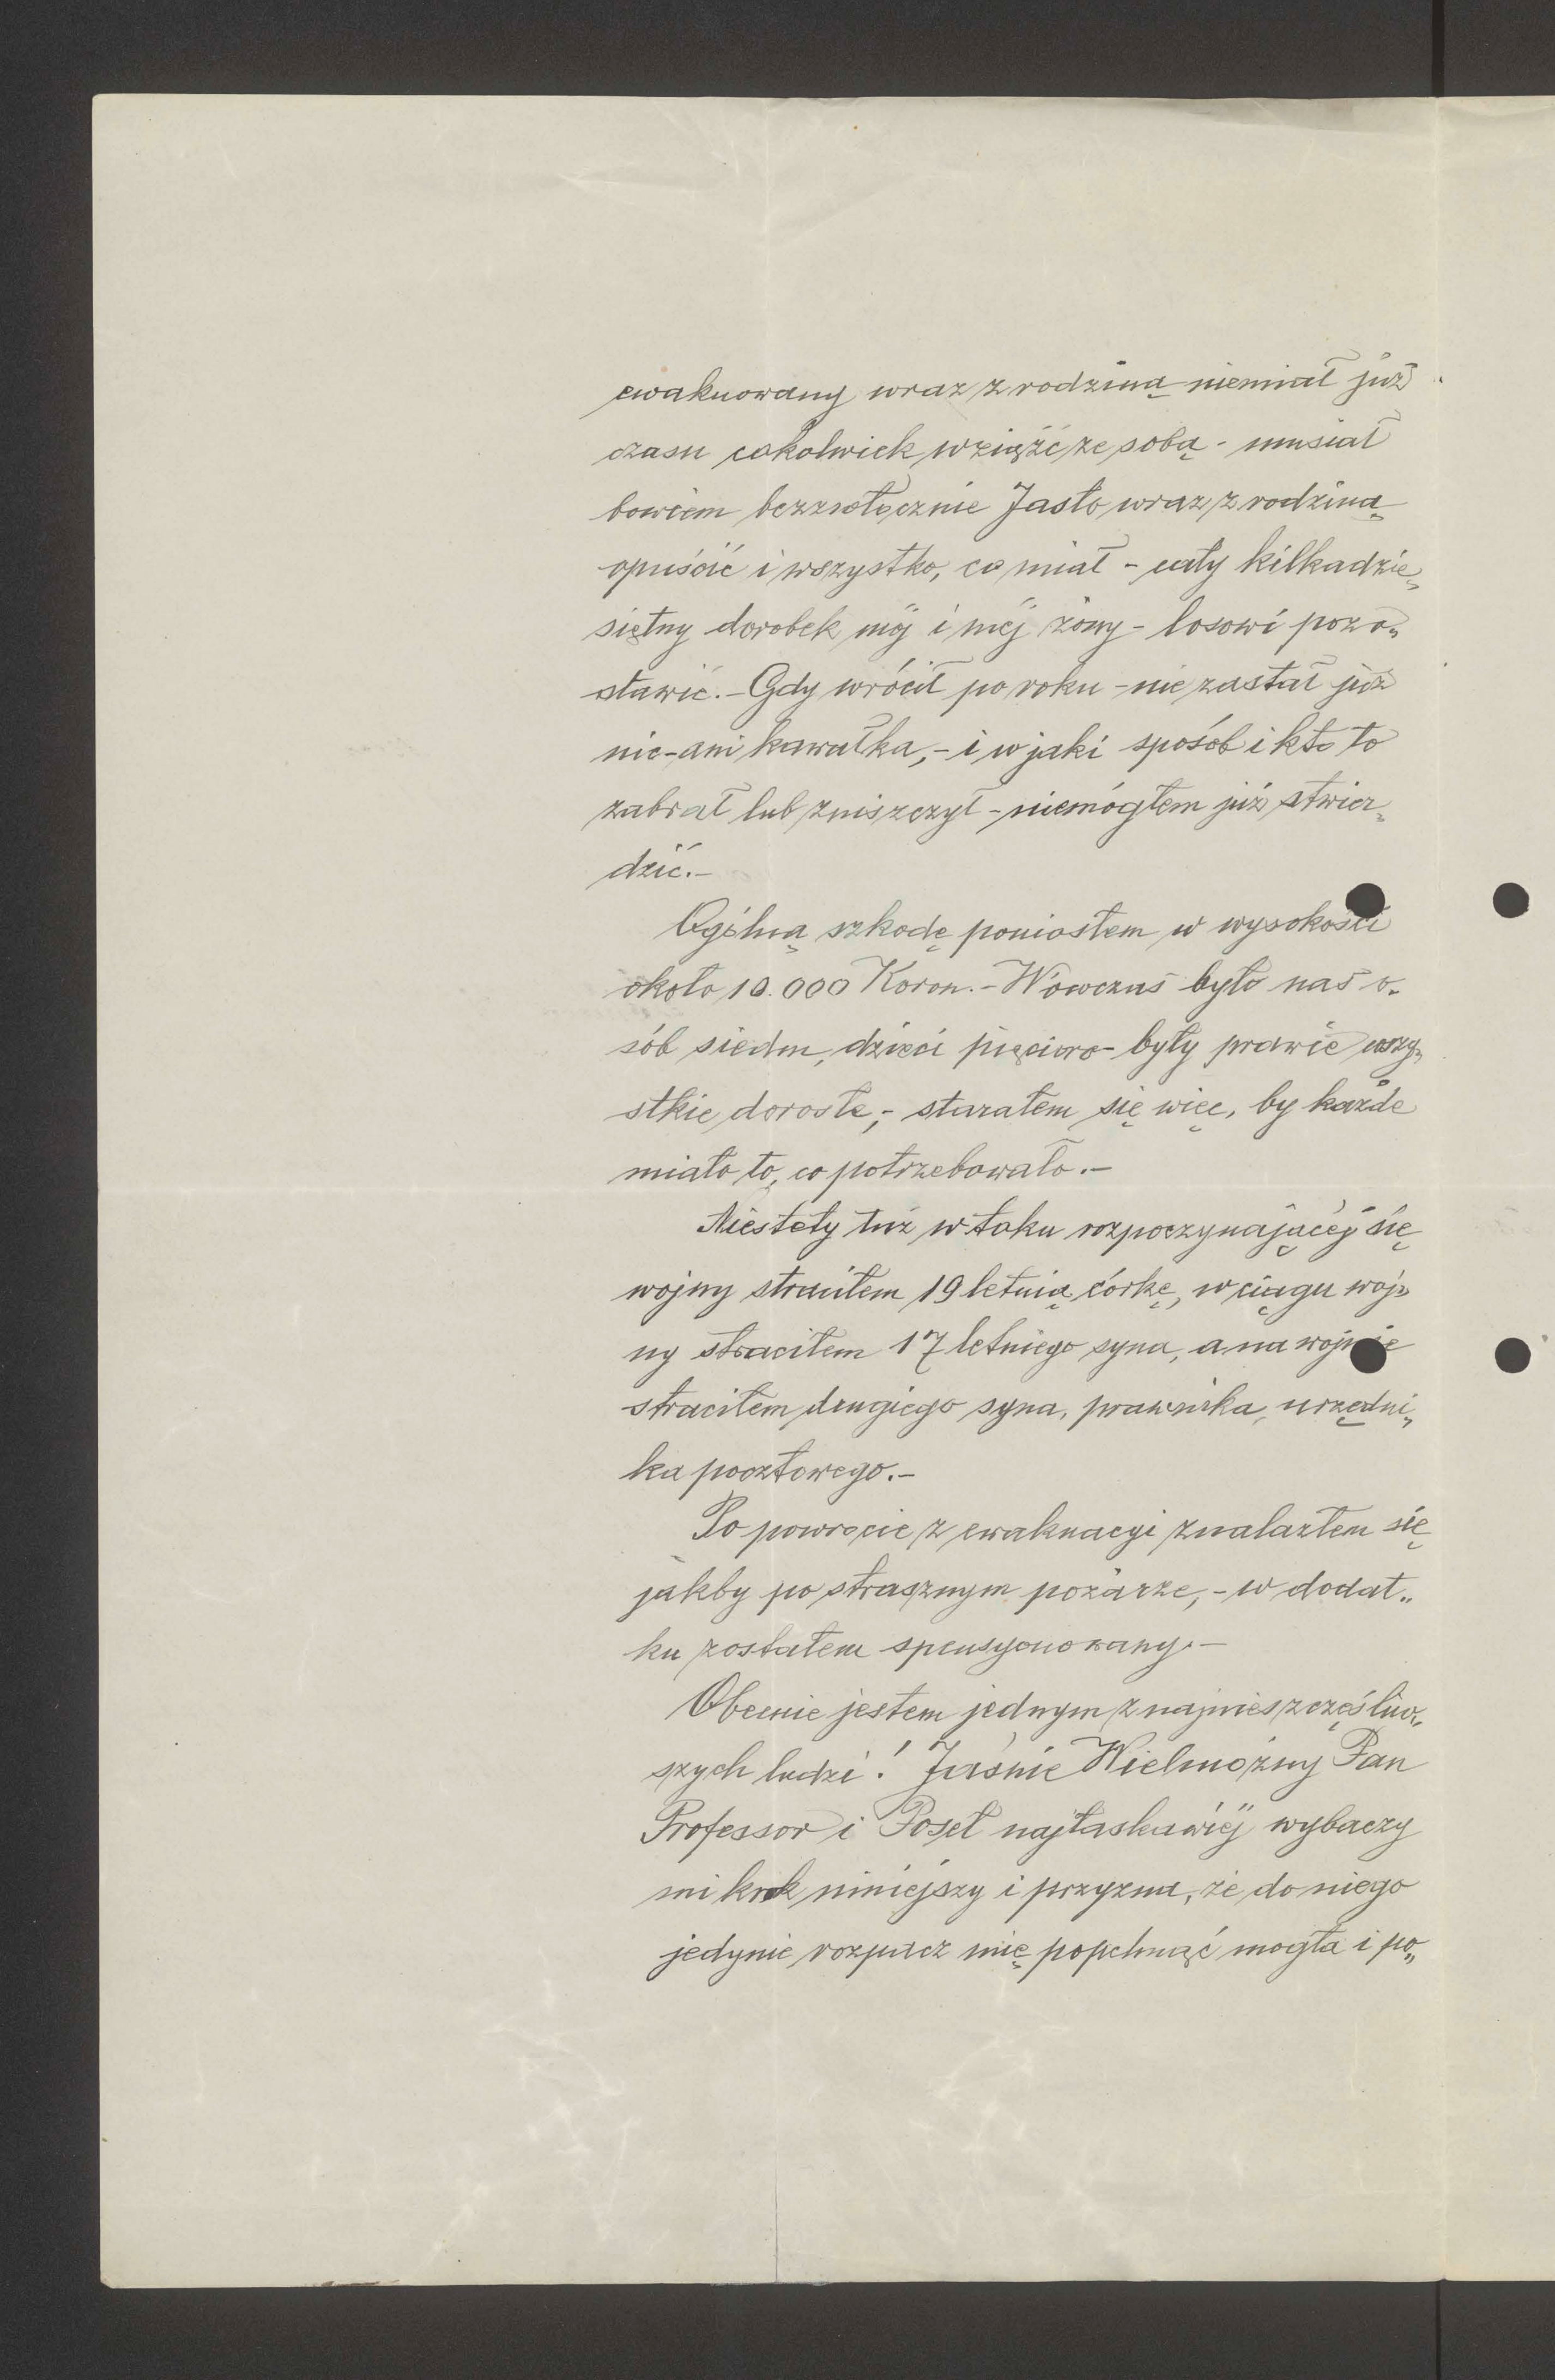 ewakuowany wraz z rodziną niemiał już
czasu cokolwiek wziąźć ze sobą - musiał
bowiem bezzwłocznie Jasło wraz z rodziną
opuścić i wszystko, co miał - cały kilkadzie„
siętny dorobek mój i méj żony - losowi pozo„
stawić. - Gdy wrócił po roku - nie zastał już
nic - ani kawałka, - i w jaki sposób i kto to
zabrał lub zniszczył - niemógłem już stwier„
dzić. -
Ogólną szkodę poniosłem w wysokości
około 10.000 Koron. - Wówczas było nas o„
sób siedm, dzieci pięcioro - były prawie wszy„
stkie dorosłe, - starałem się więc, by każde
miało to, co potrzebowało. -
Niestety tuż w toku rozpoczynającéj się
wojny straciłem 19 letnią córkę, w ciągu woj„
ny straciłem 17 letniego syna, a na wojnie
straciłem drugiego syna, prawnika, urzędni„
ka pocztowego. -
Po powrocie z ewakuacyi znalazłem się
jakby po strasznym pożarze, - w dodat„
ku zostałem spensyonowany. -
Obecnie jestem jednym z najnieszczęśliw„
szych ludzi! Jaśnie Wielmożny Pan
Professor i Poseł najłaskawiéj wybaczy
mi krok niniejszy i przyzna, że do niego
jedynie rozpacz mię popchnąć mogła i po„